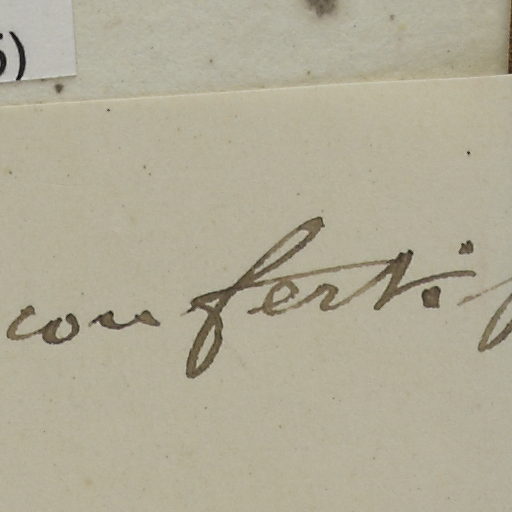 5)
confertif